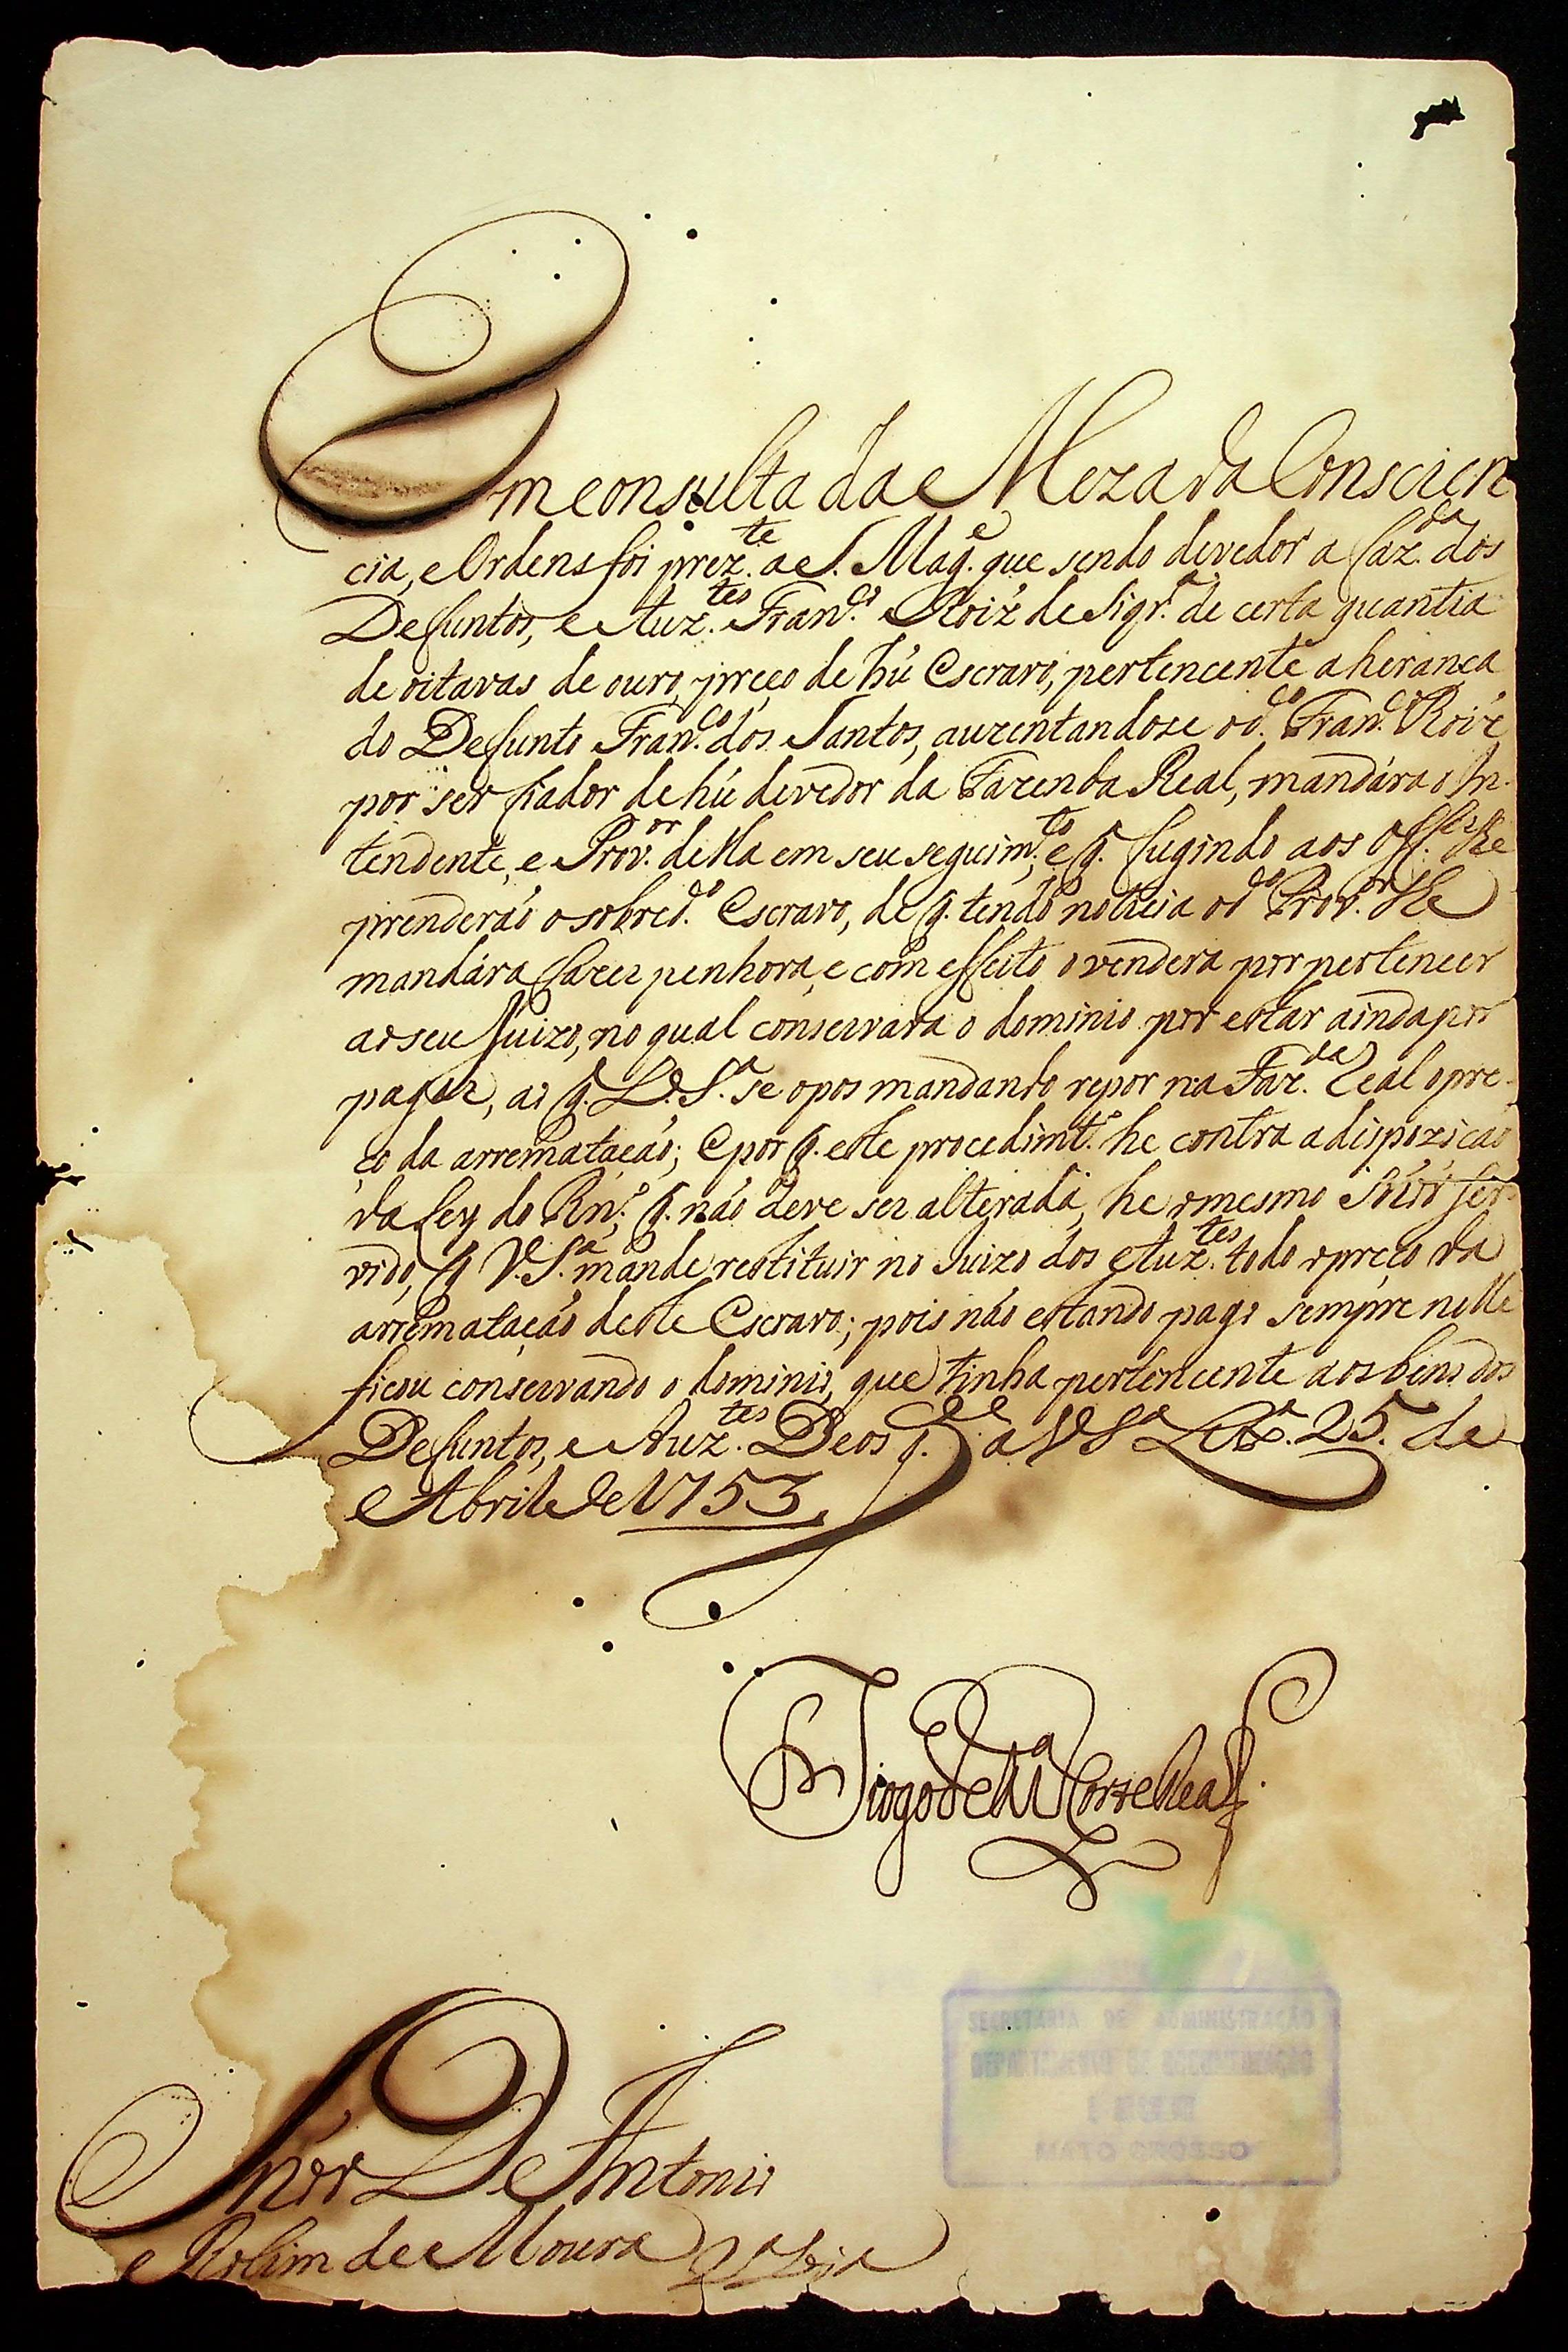 Em consulta da Meza da Conscien
cia, e Ordens foi prez.te a S. Mag.e que sendo devedor a faz.da dos
Defuntos, e Auz.tes Fran.co Roiz de Siqr.a de certa quantia
de oitavas de ouro, preço de hú Escravo, pertencente a herança
do Defunto Fran.co dos Santos, auzentandose o d.o Fran.co Roiz
por ser fiador de hú devedor da Fazenda Real, mandára o In-
tendente, e Prov.or della em seu seguim.to, e q. fugindo aos Off.es lhe
prenderáo o sobred.o Escravo, de q. tendo noticia o d.o Prov.or lhe
mandára fazer penhora, e com effeito o vendera por pertencer
ao seu Juizo, no qual conservara o dominio por estar ainda por
pagar, ao q. V. S.a se opos mandando repor na Faz.da Real o pre-
ço da arremataçáo; E por q. este procedim.to he contra a dispoziçáo
da Ley do Rn.o, q. náo deve ser alterada, he o mesmo Snór ser-
vido, q V. S.a mande restituir no Juizo dos Auz.tes todo o preço da
arremataçáo deste Escravo; pois náo estando pago sempre nelle
ficou conservando o dominio, que tinha pertencente aos bens dos
Defuntos, e Auz.tes Deos g.de a V S.a Lx.a 25. de
Abril de 1753.
Diogo de M.ca Corte Real
SECRETARIA DE ADMINISTRAÇÃO
DEPARTAMENTO DE DOCUMENTAÇÃO
MATO GROSSO
Snór D. Antonio
Rolim de Moura